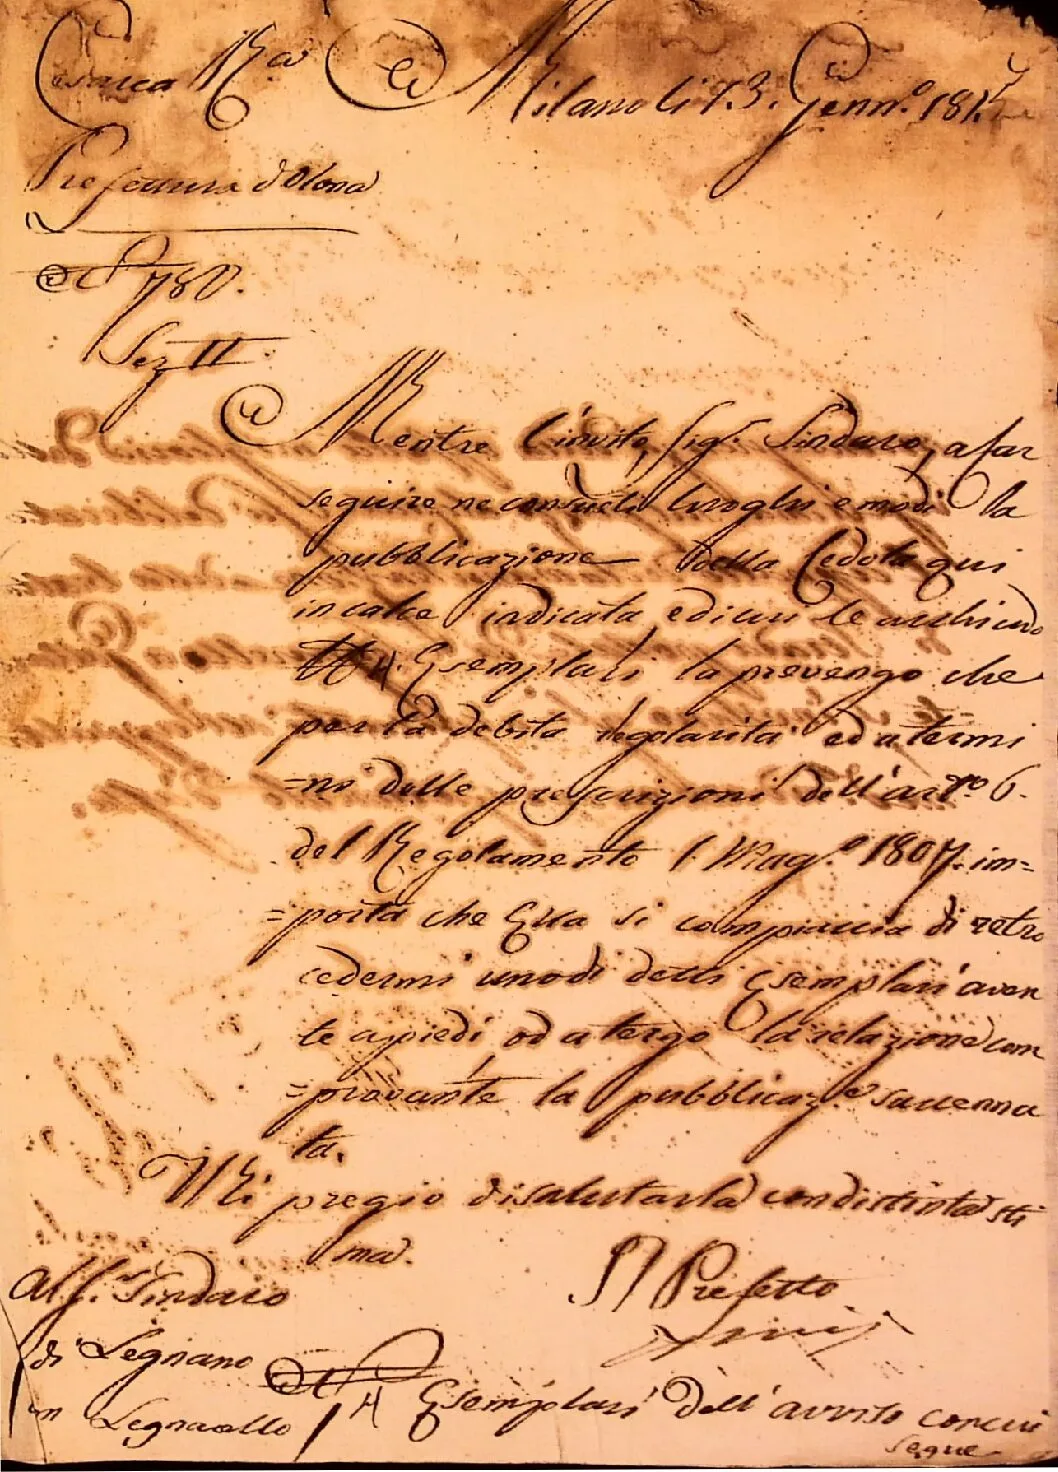 Cesarea R.a
Milano li 13. Genn.o 181
Prefettura d'Olona
N.o 780.
Sez II.
Mentre l'invito, Sig.r Sindaco, a far
seguire ne consueti luoghi e modi la
pubblicazione della Cedola qui
in calce indicata e di cui le acchiudo
N 4. Esemplari la prevengo che
per la debita regolarità ed a termi
=ni delle prescrizioni dell'art.o 6.
del Regolamento 1 Mag.o 1807. im=
=porta che Ella si compiaccia di retro
cedermi uno di detti Esemplari aven
te a piedi od a tergo la relazione com
=provante la pubblicaz.e sacenna
ta.
Mi pregio di salutarla con distinta sti
ma.
Il Prefetto
Al S.r Sindaco
di Legnano
in Legnarello
N 4 Esemplari dell'avviso concer
segue